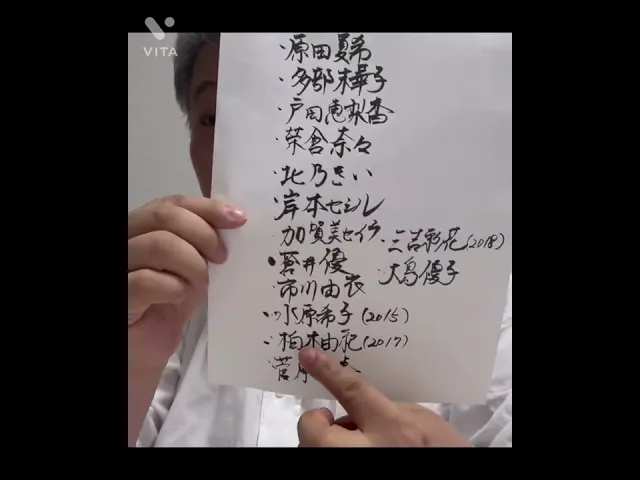 VITA
・原田夏希
・多部未華子
・戸田恵梨香
・榮倉奈々
・北乃きい
・岸本セシル
・加賀美セイラ
・三吉彩花(2018)
・蒼井優
・大島優子
・市川由衣
・水原希子(2015)
・柏木由紀(2017)
・菅